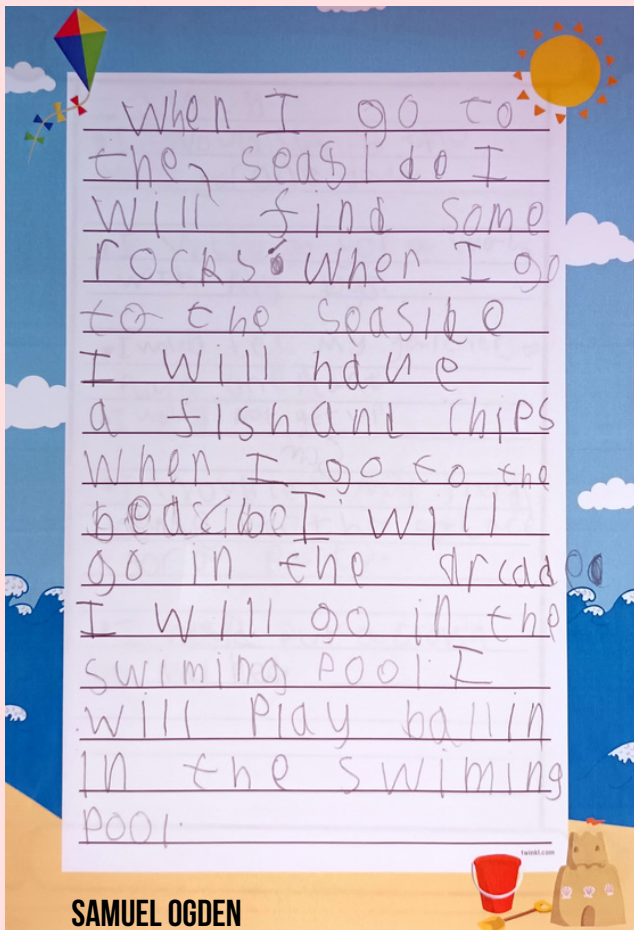 When I go to
the seaside I
will find some
rocks. When I go
to the seaside
I will have
a fish and chips
When I go to the
seaside I will
go in the arcade
I will go in the
swiming pool. I
will play ball in
in the swiming
pool.
twinkl.com
SAMUEL OGDEN